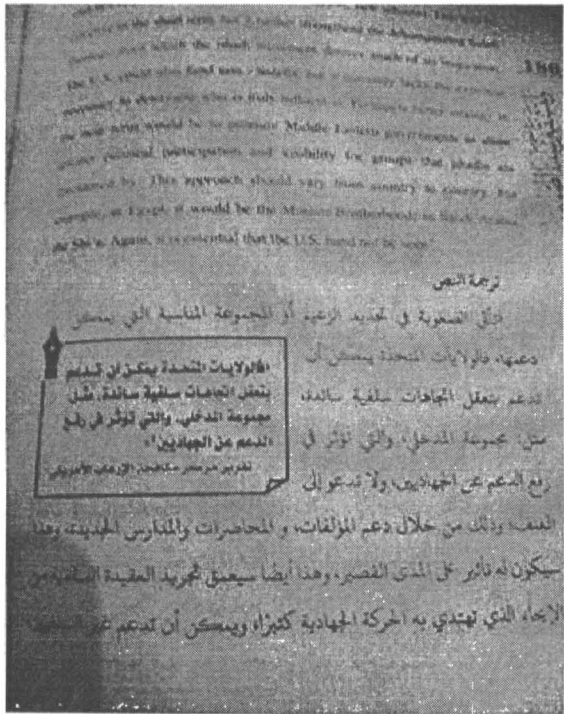 in the short term but it further strengthens the dehumanizing Salafi
from which the jihadi movement draws much of its inspiration.
The U.S. could also fund non-Salafis, but it currently lacks the expertise
necessary to determine who is truly influential.
the near term would be to pressure Middle Eastern governments to allow
greater political participation and visibility for groups that jihadis are
threatened by. This approach should vary from country to country. For
example, in Egypt, it would be the Muslim Brotherhood; in Saudi Arabia,
the Shi'a. Again, it is essential that the U.S. hand not be seen
ترجمة النص
تتأتى الصعوبة في تحديد الزعيم أو المجموعة المناسبة التي يمكن
دعمها، فالولايات المتحدة يمكن أن
تدعم بتعقل اتجاهات سلفية سائدة،
مثل: مجموعة المدخلي، والتي تؤثر في
رفع الدعم عن الجهاديين، ولا تدعو إلى
العنف، وذلك من خلال دعم المؤلفات، و المحاضرات والمدارس الجديدة، وهذا
سيكون له تأثير على المدى القصير، وهذا أيضًا سيعمق تجريد العقيدة السلفية من
الإيحاء الذي تهتدي به الحركة الجهادية كثيرًا، ويمكن أن تدعم غير
«الولايات المتحدة يمكن ان تدعم
بتعقل اتجاهات سلفية سائدة، مثل
مجموعة المدخلي، والتي تؤثر في رفع
الدعم عن الجهاديين!»
تقرير مركز مكافحة الإرهاب الأمريكي